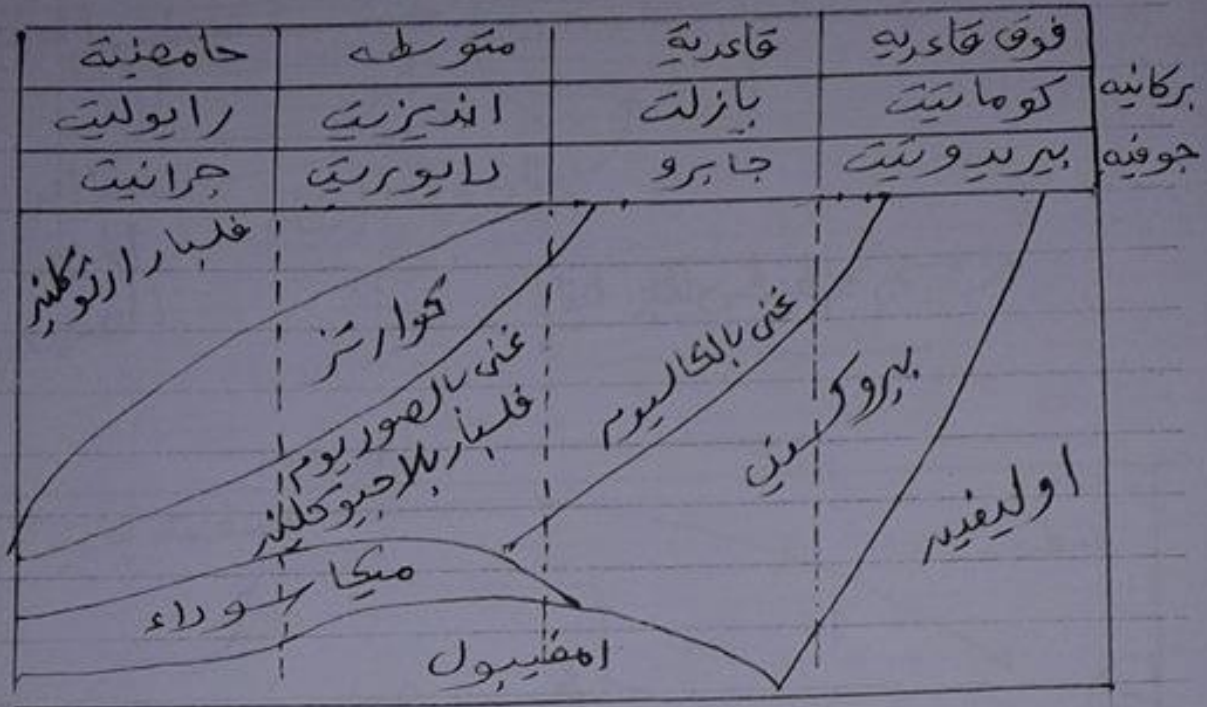 فوق قاعديه قاعدية متوسطه حامضية
بركانيه كوماتيت بازلت انديزيت رايوليت
جوفيه بيريدوتيت جابرو دايوريت جرانيت
فلسبار ارثوكليز
كوارتز
غنى بالصوديوم
فلسبار بلاجيوكليز
غنى بالكاليوم
بيروكسين
اوليفين
ميكا سوداء
امفيبول